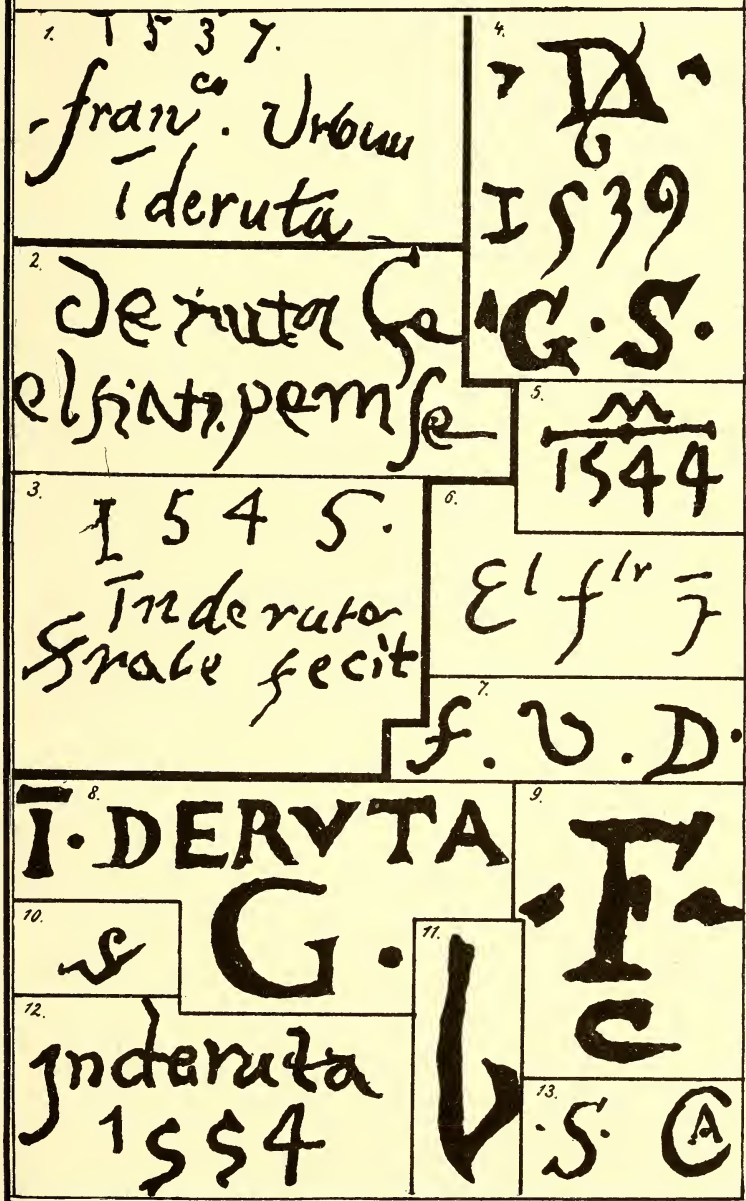 1.
1537.
franco. Urbini
ī deruta
2.
deruta
el frate pemse
3.
1545.
īn deruta
frate fecit
4.
1539
G. S.
5.
M
1544
6.
El f lr
7.
f. U. D.
8.
Ī. DERVTA
G.
9.
F
C
10.
S
11.
12.
jnderuta
1554
13.
.S. CA